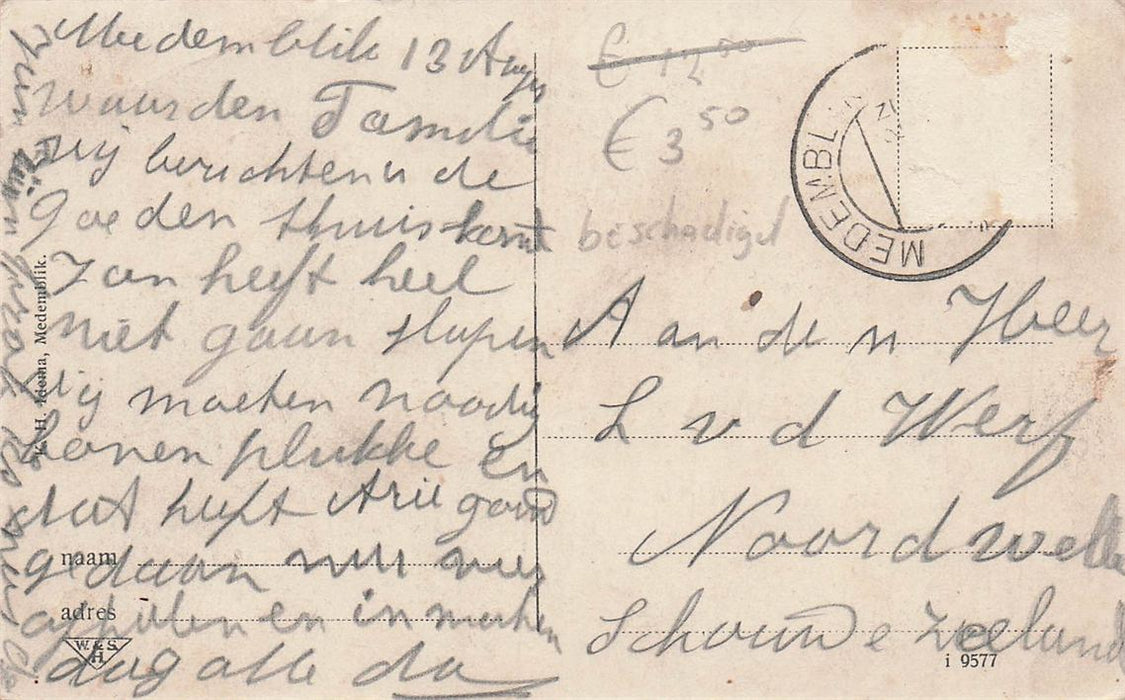 Medemblik 13 Augs
waarden Familie
wij berichten u de
goeden thuiskomt
Jan heeft heel
niet gaan slapen
wij moeten noodig
bonen plukke en
dat heeft Arie goed
gedaan nuu weer
appelen en in maken
dag alle da
K. H. Idema, Medemblik.
naam
adres
W. & S.
H
€ 12 50
€ 3 50
beschadigd
MEDEMBL
Aan de n Heer
L v d Werf
Noordwelle
Schouwe Zeeland
i 9577